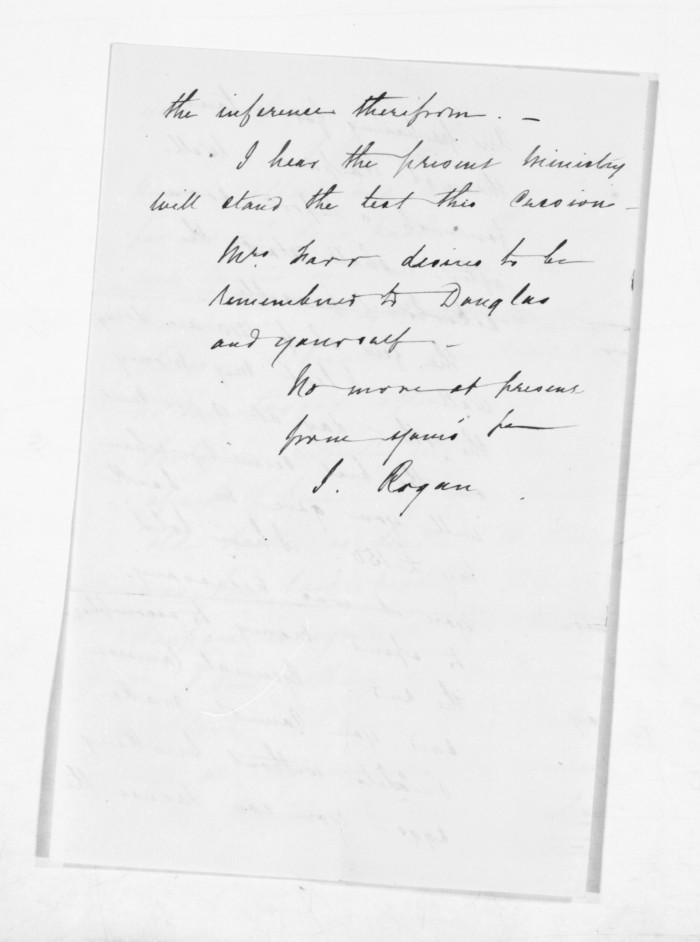 the inference therefrom. —
I hear the present Ministry
will stand the test this Cession —
Mrs. Farr desires to be
remembered to Douglas
and yourself —
No more at present
from yours
J. Rogan